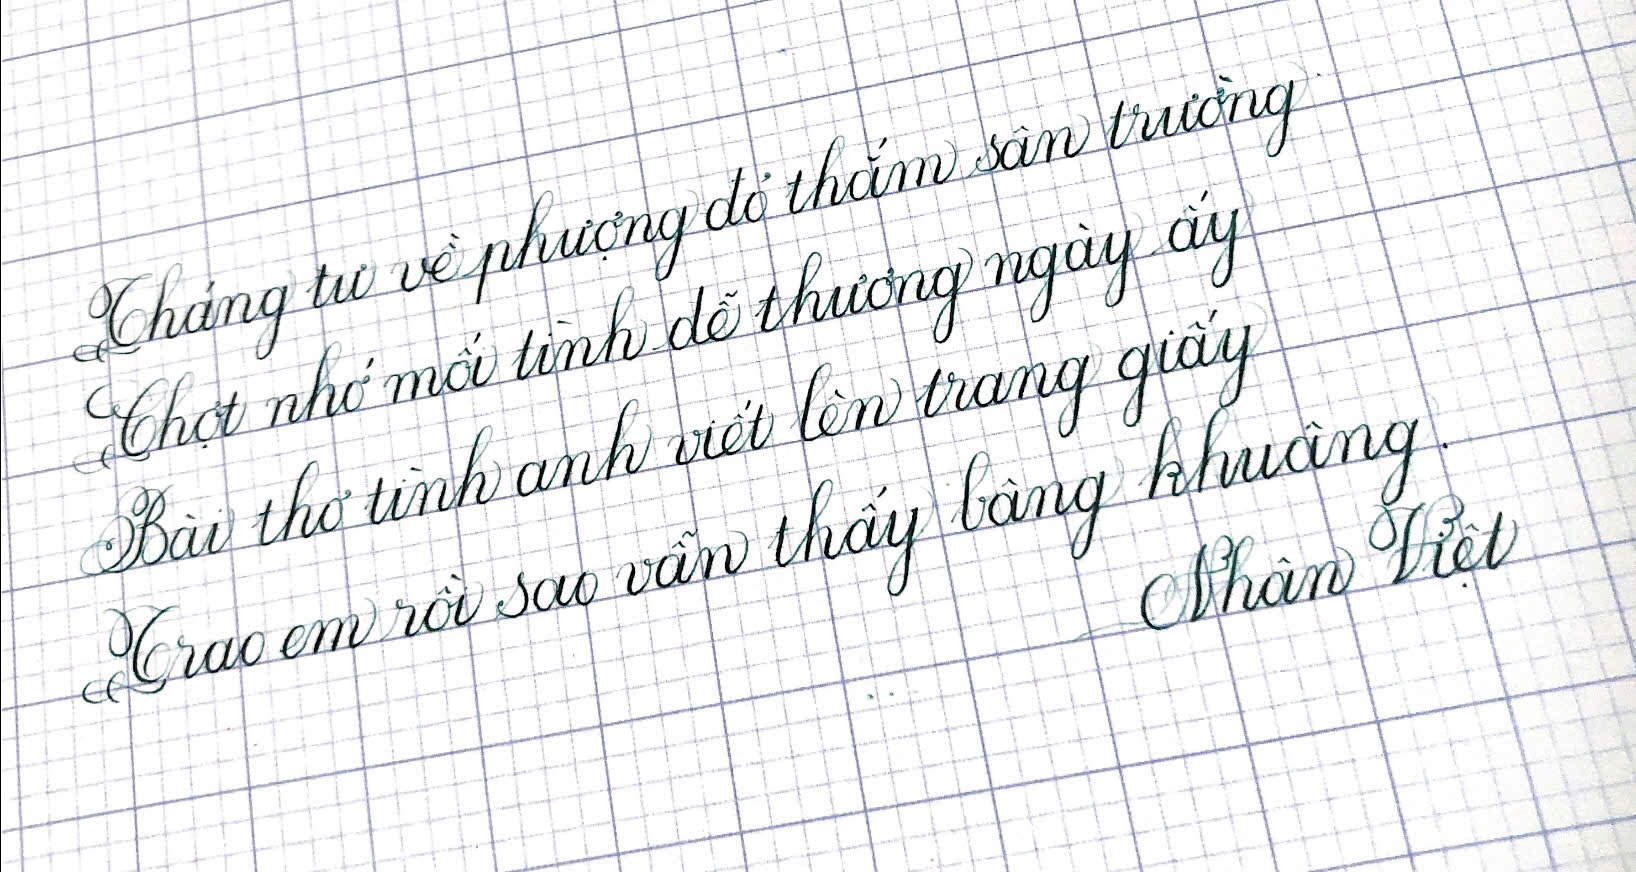 Tháng tư về phượng đỏ thắm sân trường
Chợt nhớ mối tình dễ thương ngày ấy
Bài thơ tình anh viết lên trang giấy
Trao em rồi sao vẫn thấy bâng khuâng.
Nhân Việt